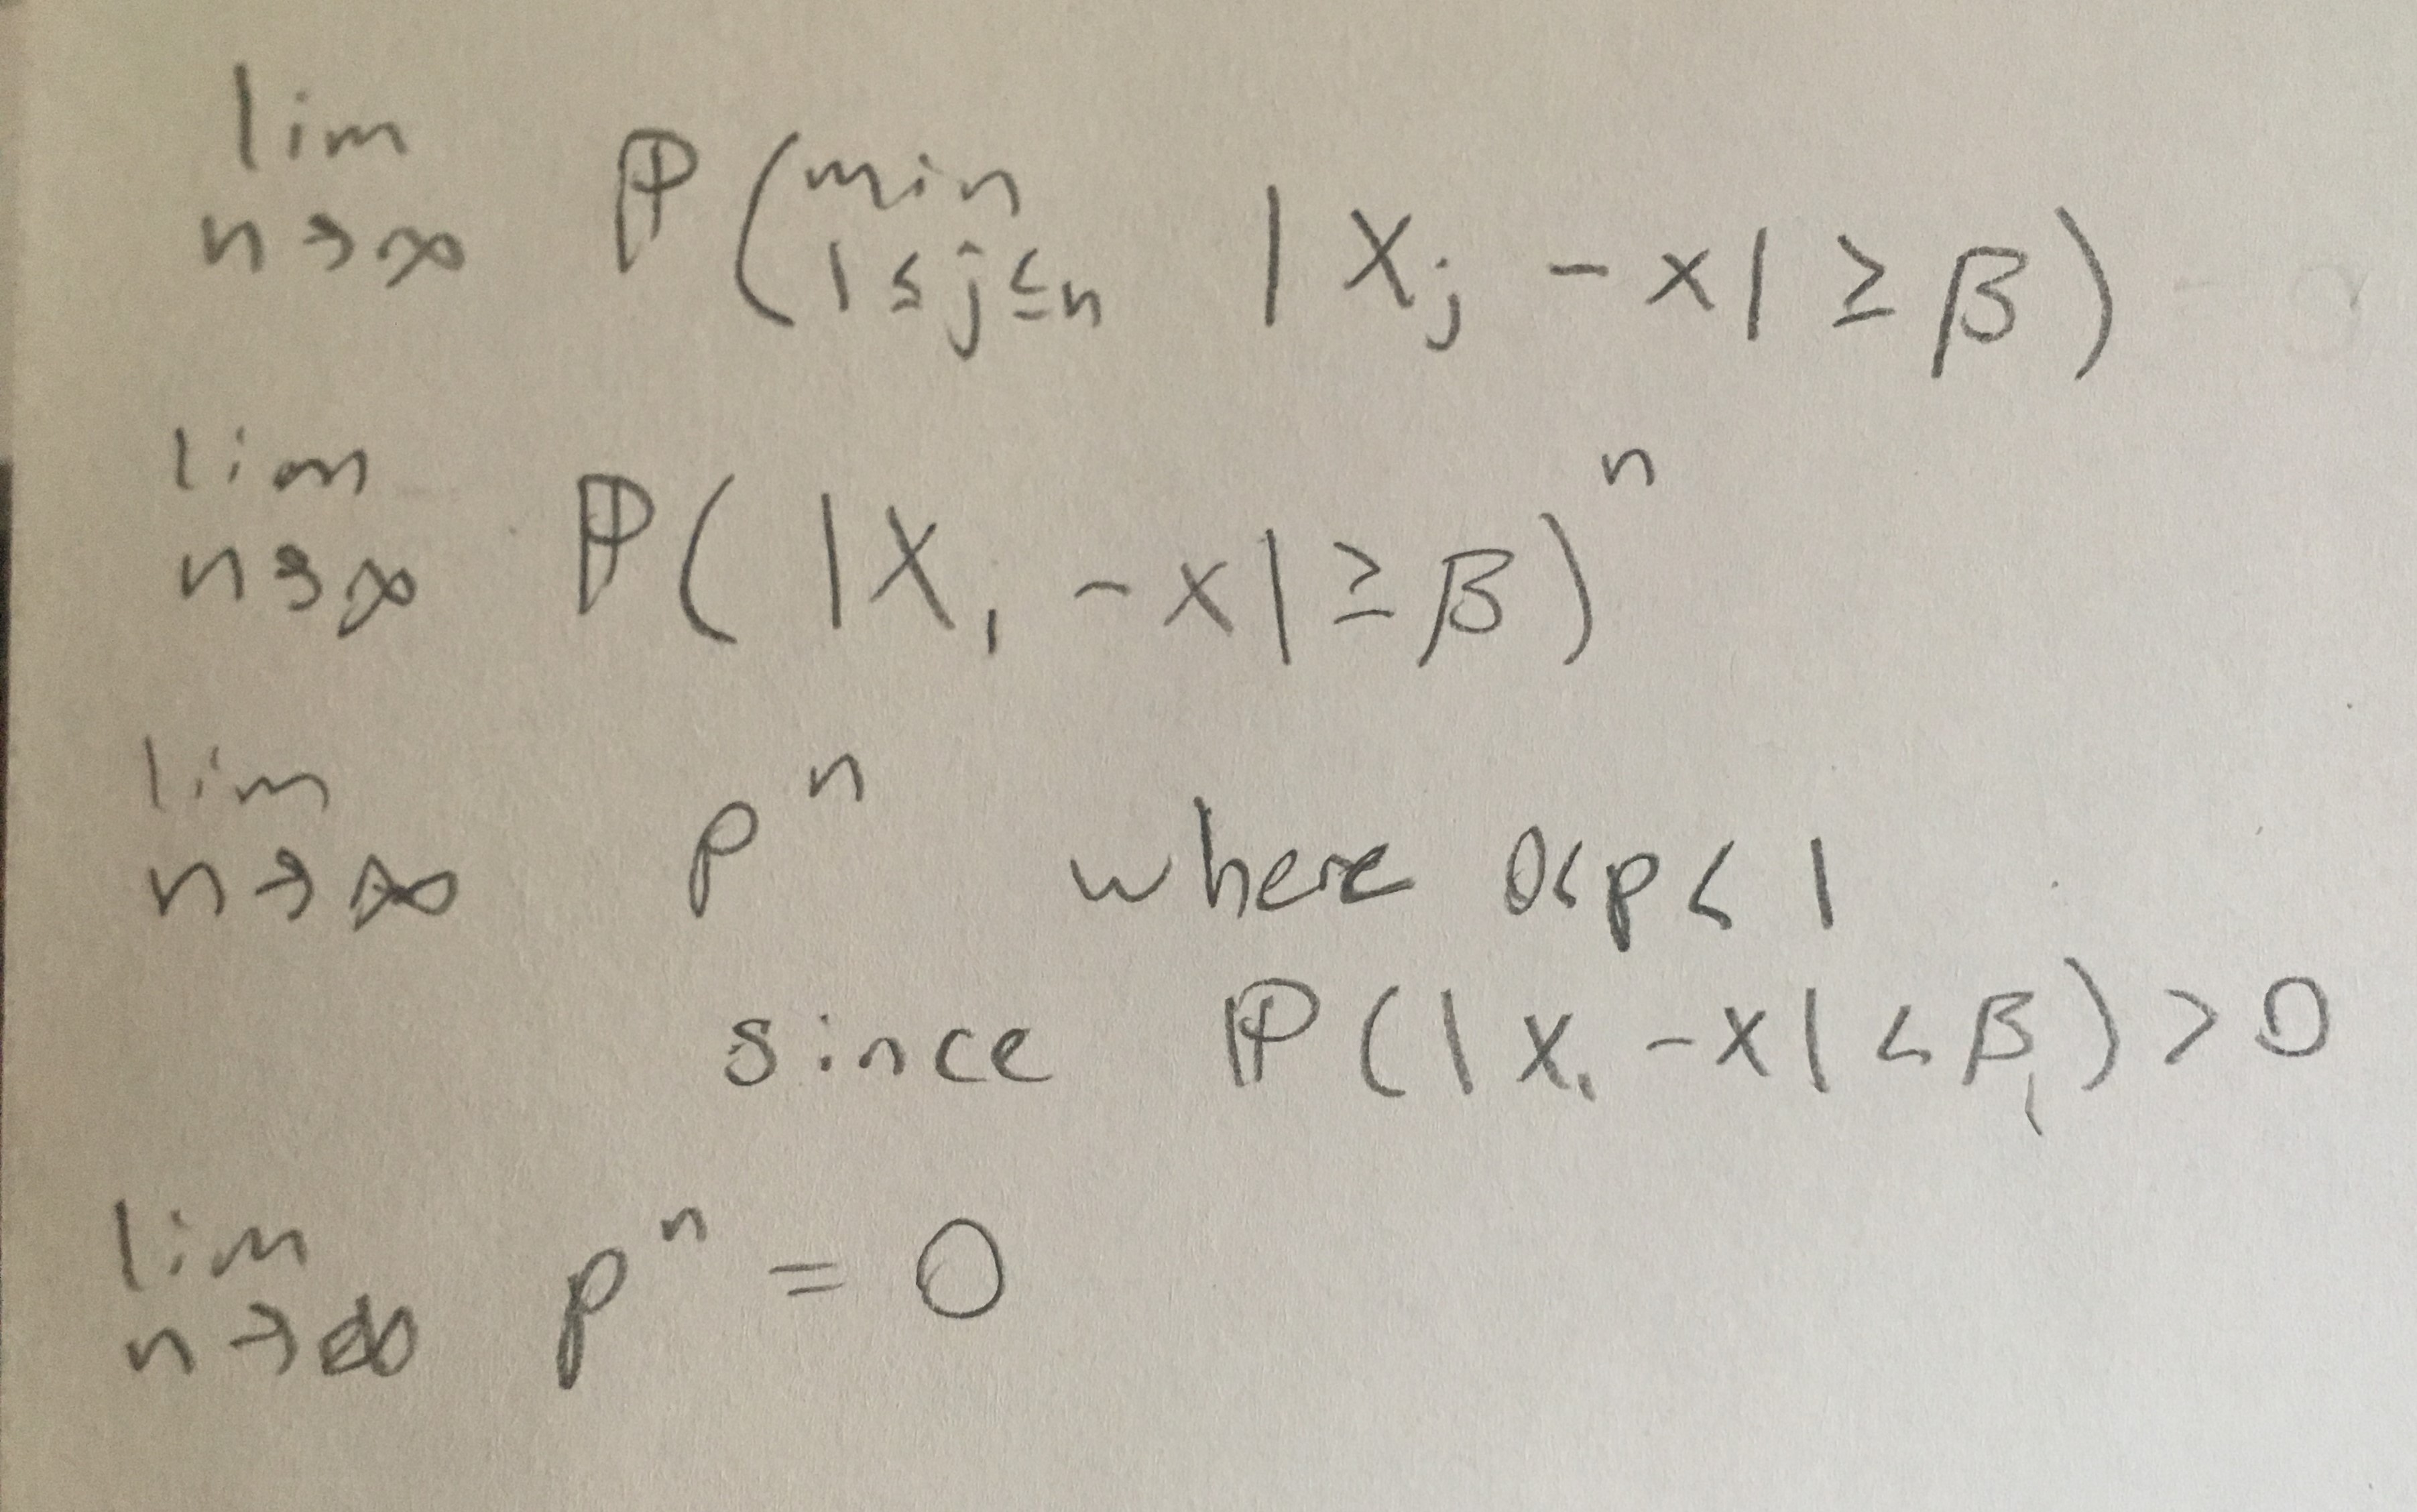 lim n→∞ ℙ( min 1≤j≤n |X_j - x| ≥ β )
lim n→∞ ℙ( |X_1 - x| ≥ β )^n
lim n→∞ p^n where 0<p<1
since ℙ( |X_1 - x| < β ) > 0
lim n→∞ p^n = 0